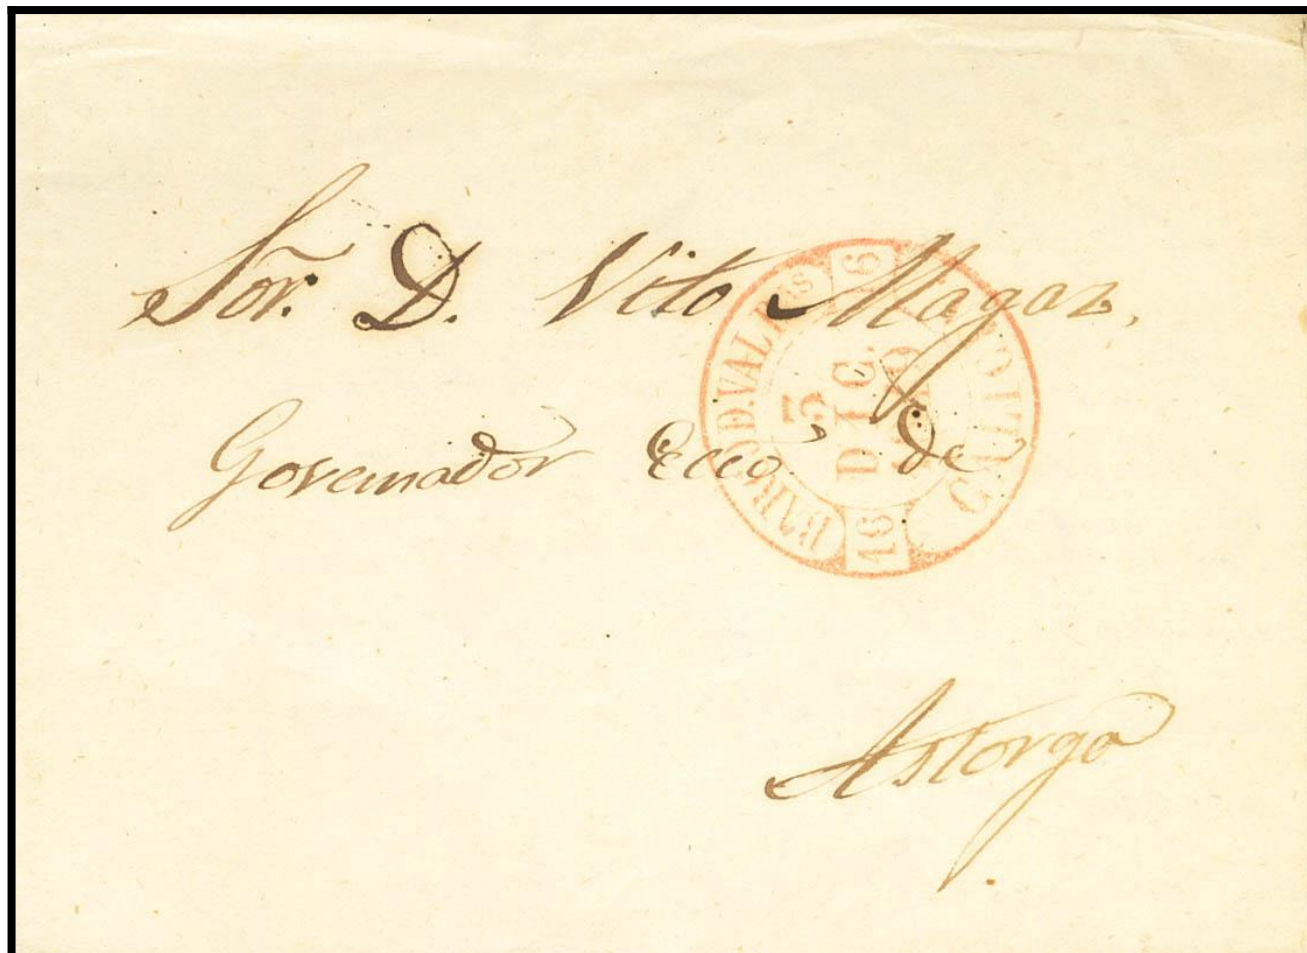 Sõr. D. Vito Magaz,
Governador Ecco. de
Astorga
BARCO D. VALD.ʳᵃˢ
16
5
DIC.
16